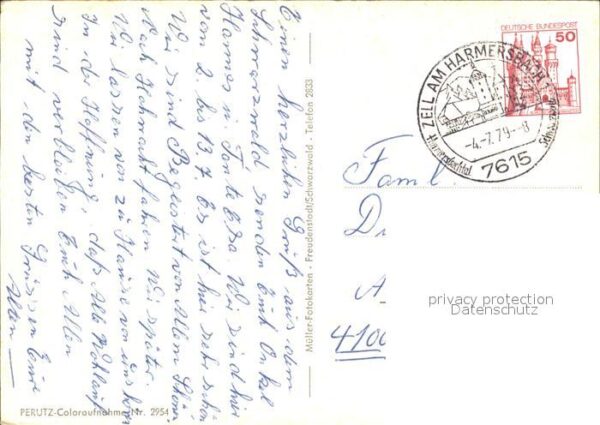 Einen herzlichen Gruß aus dem
Schwarzwald senden Euch Onkel
Hannes u. Tante Elsa. Wir sind hier
vom 2. bis 13.7. Es ist hier sehr schön
Wir sind Begeistert von Allem Schönen
Nach Hofmacht fahren Wir später.
Wir lassen von zu Hause von uns hören
In der Hoffnung, daß Alle Wohlauf
sind verbleiben Euch Allen
mit den besten Grüssen Eure
Alten
Müller-Fotokarten - Freudenstadt/Schwarzwald - Telefon 2833
PERUTZ-Coloraufnahme Nr. 2954
DEUTSCHE BUNDESPOST
50
ZELL AM HARMERSBACH 1
-4.-7.79--8
7615
Famil
D
A
4100
privacy protection
Datenschutz